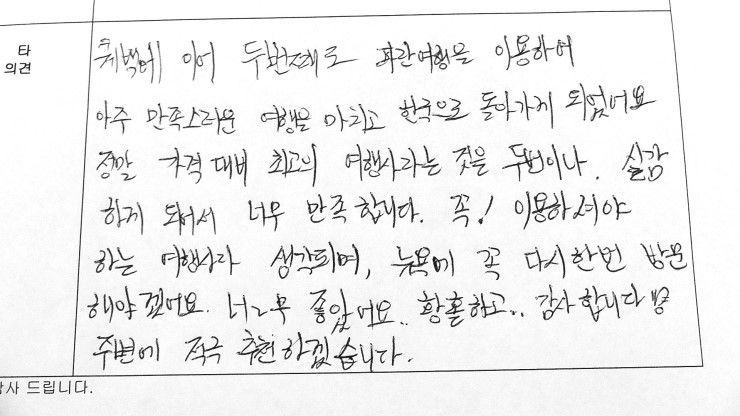 타
의견
퀘벡에 이어 두번째로 파란여행을 이용하여
아주 만족스러운 여행을 마치고 한국으로 돌아가게 되었어요
정말 가격 대비 최고의 여행사라는 것을 두번이나. 실감
하게 되어서 너무 만족합니다. 꼭! 이용하셔야
하는 여행사라 생각되며, 뉴욕에 꼭 다시한번 방문
해야겠어요. 너~무 좋았어요.. 황홀하고.. 감사합니다
주변에 적극 추천하겠습니다.
감사 드립니다.